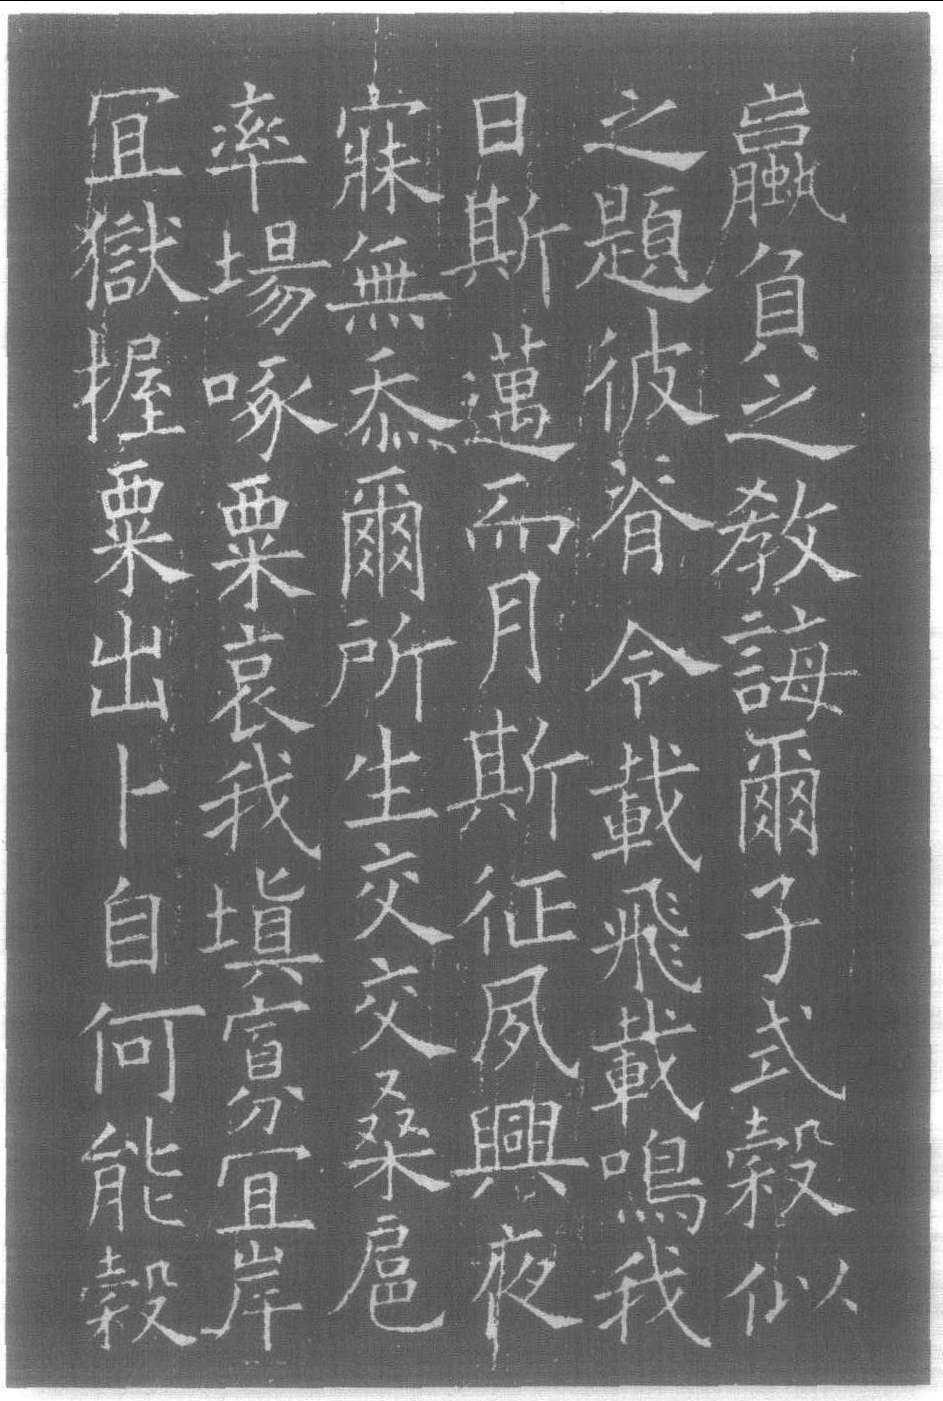 蠃負之教誨爾子式穀似
之題彼脊令載飛載鳴我
日斯邁而月斯征夙興夜
寐無忝爾所生交交桑扈
率場啄粟哀我塡寡冝岸
冝獄握粟出卜自何能穀